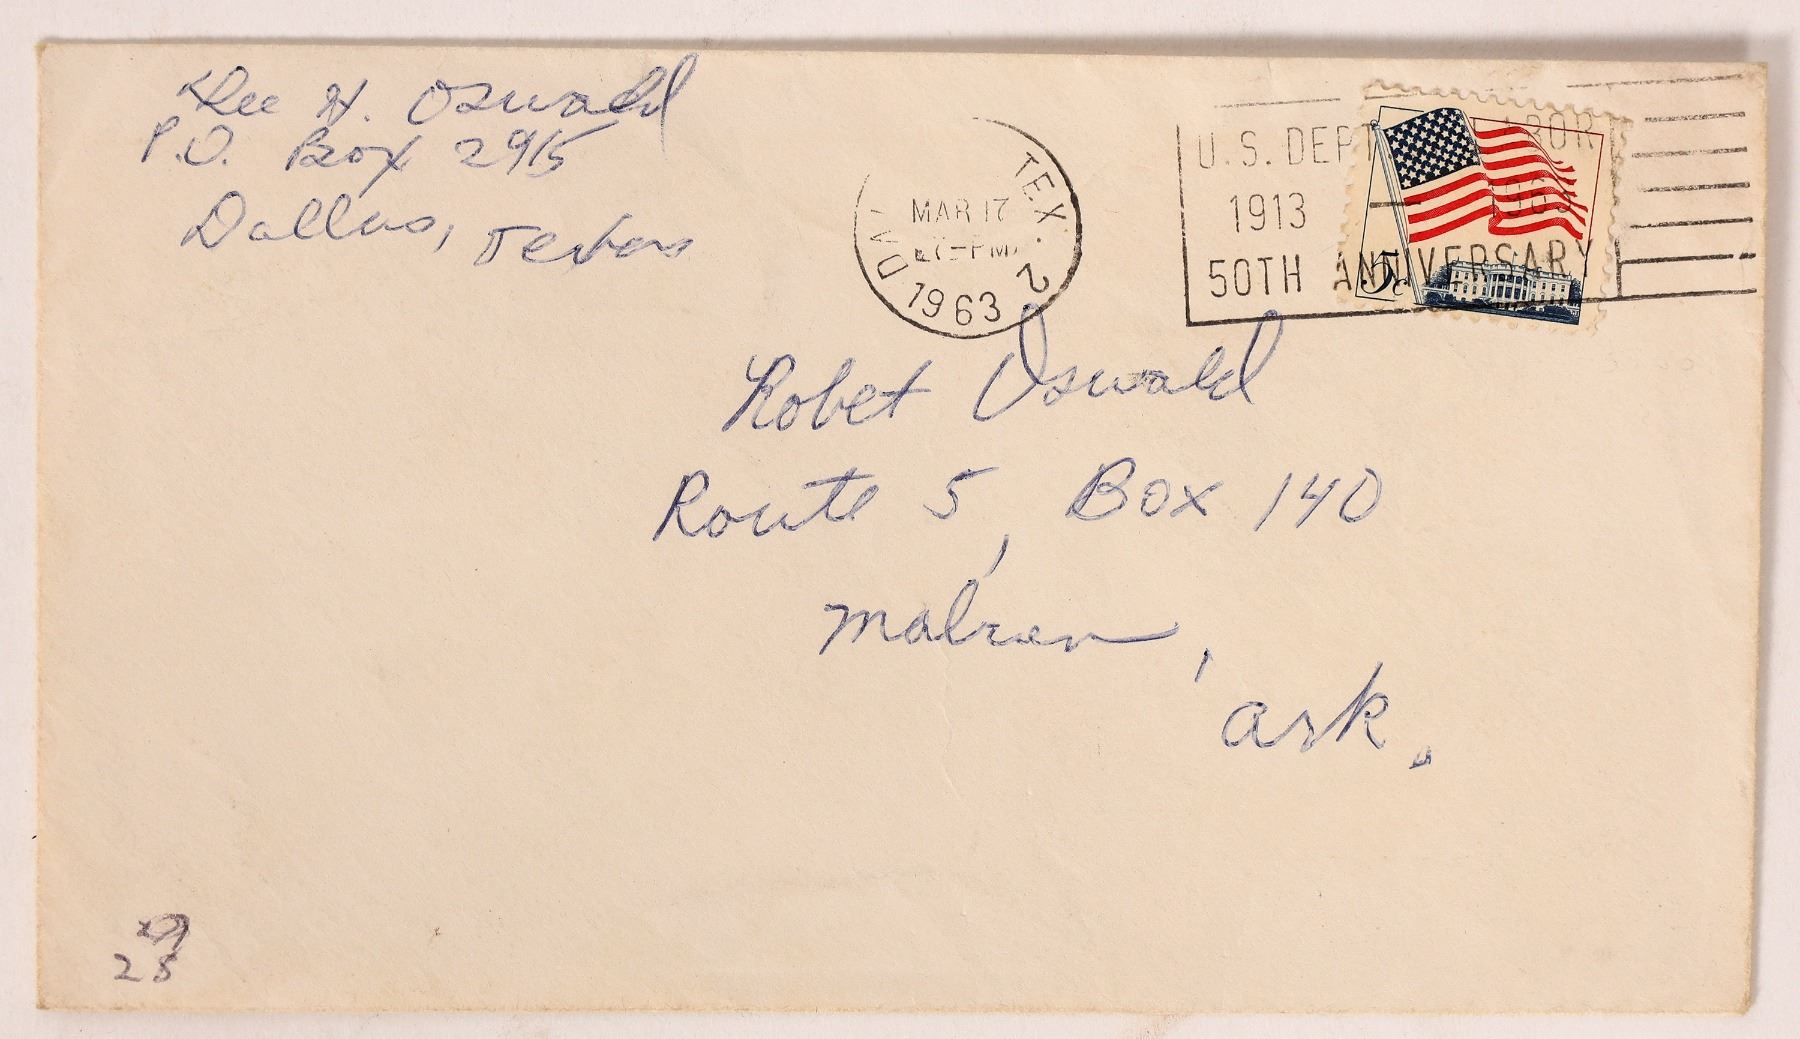 Lee H. Oswald
P.O. Box 2915
Dallas, Texas
TEX. 2
MAR 17
-PM
1963
U.S. DEPT LABOR
1913 — 1963
50TH ANNIVERSARY
5c
Robet Oswald
Route 5, Box 140
Malvern,
Ark.
28